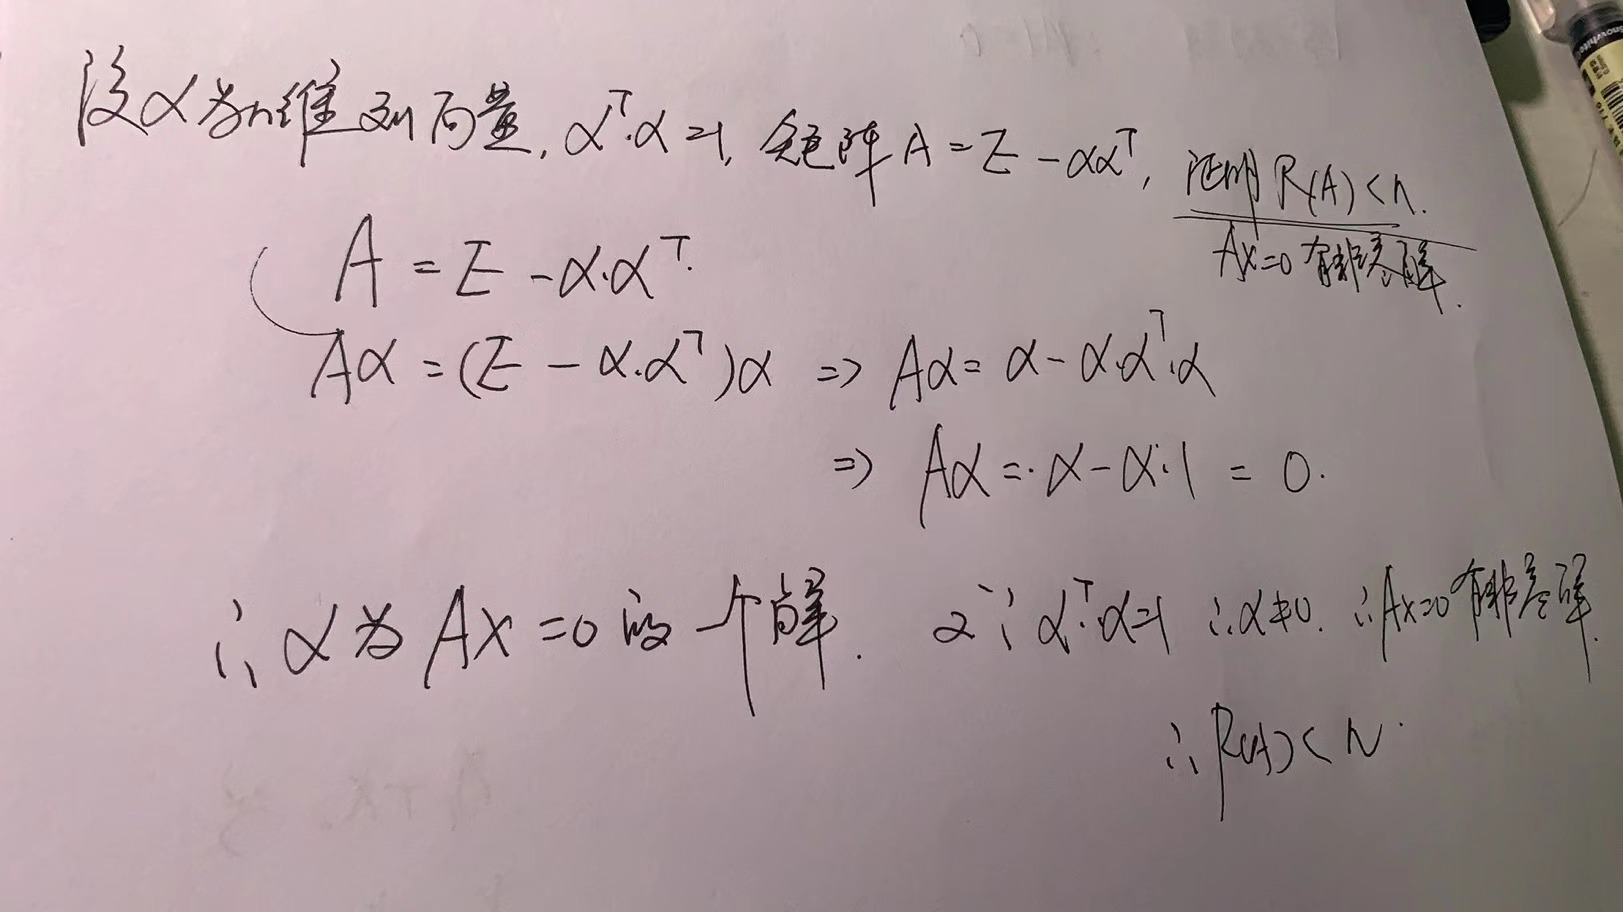 设α为n维列向量, αᵀ·α=1, 矩阵A=E-ααᵀ, 证明R(A)<n.
Ax=0有非零解.
A=E-α·αᵀ.
Aα=(E-α·αᵀ)α => Aα=α-α·αᵀ·α
=> Aα=α-α·1=0.
∴α为Ax=0的一个解. 又∵αᵀ·α=1 ∴α≠0. ∴Ax=0有非零解.
∴R(A)<n.